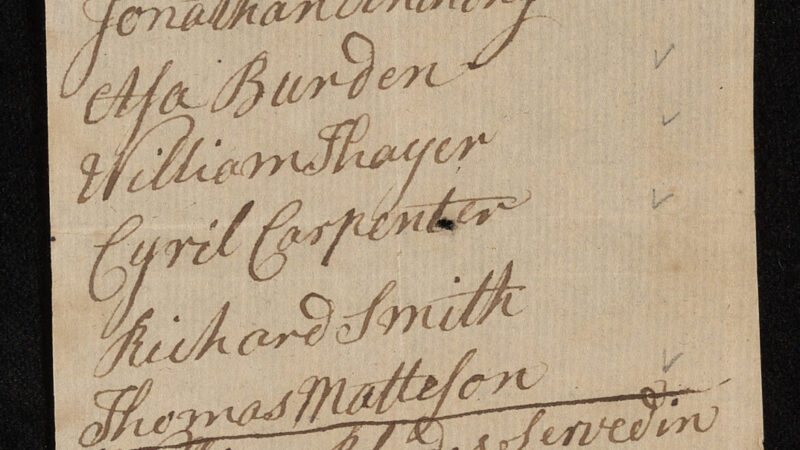 Jonathan
Asa Burden
William Thayer
Cyril Carpenter
Richard Smith
Thomas Matteson
Served in